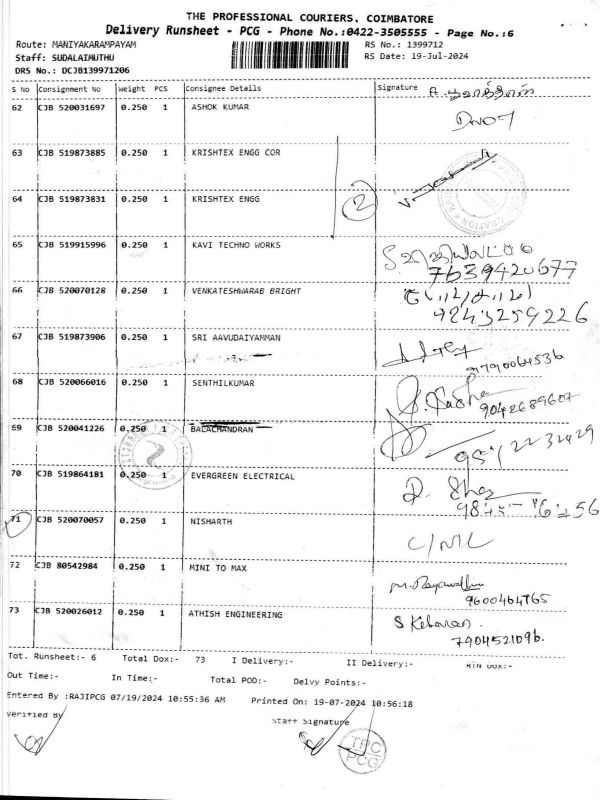 THE PROFESSIONAL COURIERS, COIMBATORE
Delivery Runsheet - PCG - Phone No.:0422-3505555 - Page No.:6
Route: MANIYAKARAMPAYAM RS No.: 1399712
Staff: SUDALAIMUTHU RS Date: 19-Jul-2024
DRS No.: DCJB139971206
S No Consignment No Weight PCS Consignee Details Signature
62 CJB 520031697 0.250 1 ASHOK KUMAR
63 CJB 519873885 0.250 1 KRISHTEX ENGG COR
2
64 CJB 519873831 0.250 1 KRISHTEX ENGG
65 CJB 519915996 0.250 1 KAVI TECHNO WORKS
7639420677
66 CJB 520070128 0.250 1 VENKATESHWARAB BRIGHT
9243259226
67 CJB 519873906 0.250 1 SRI AAVUDAIYAMMAN
9790064536
68 CJB 520066016 0.250 1 SENTHILKUMAR
9042689607
69 CJB 520041226 0.250 1 BALACHANDRAN
70 CJB 519864181 0.250 1 EVERGREEN ELECTRICAL
71 CJB 520070057 0.250 1 NISHARTH
72 CJB 80542984 0.250 1 MINI TO MAX
9600464765
73 CJB 520026012 0.250 1 ATHISH ENGINEERING
7904521096.
Tot. Runsheet:- 6 Total Dox:- 73 I Delivery:- II Delivery:- RTN Dox:-
Out Time:- In Time:- Total POD:- Delvy Points:-
Entered By :RAJIPCG 07/19/2024 10:55:36 AM Printed On: 19-07-2024 10:56:18
Verified By Staff Signature
TPC
PCG